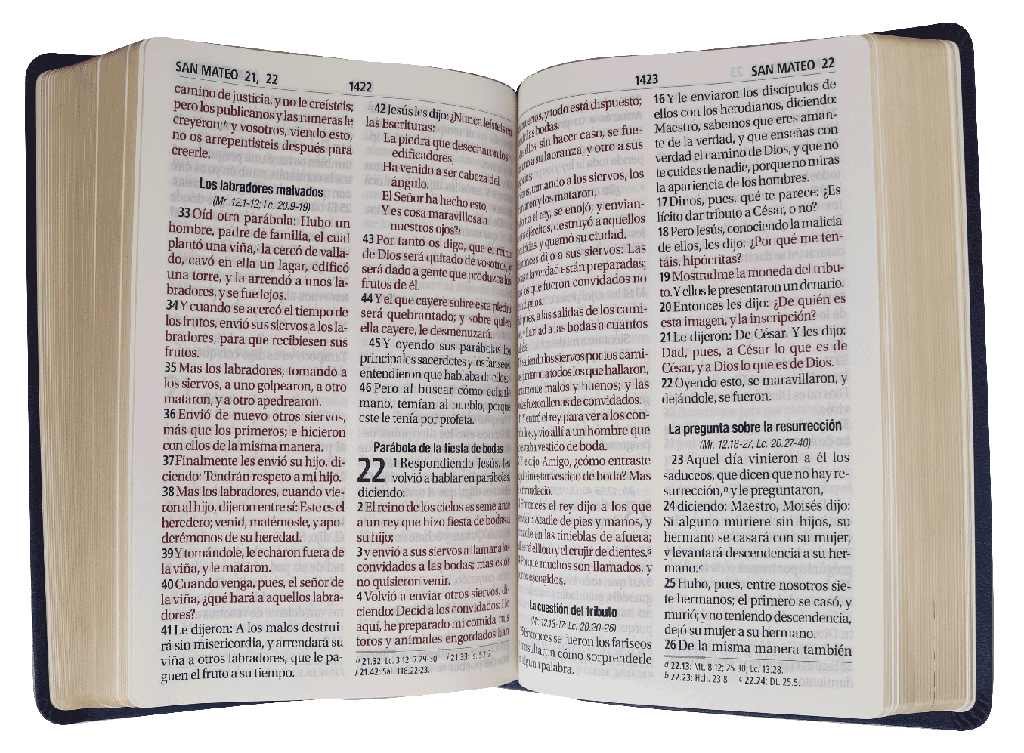 SAN MATEO 21, 22
1422
camino de justicia, y no le creísteis;
pero los publicanos y las rameras le
creyeron; y vosotros, viendo esto,
no os arrepentisteis después para
creerle.
Los labradores malvados
(Mr. 12.1-12; Lc. 20.9-19)
33 Oíd otra parábola: Hubo un
hombre, padre de familia, el cual
plantó una viña, la cercó de valla-
do, cavó en ella un lagar, edificó
una torre, y la arrendó a unos la-
bradores, y se fue lejos.
34 Y cuando se acercó el tiempo de
los frutos, envió sus siervos a los la-
bradores, para que recibiesen sus
frutos.
35 Mas los labradores, tomando a
los siervos, a uno golpearon, a otro
mataron, y a otro apedrearon.
36 Envió de nuevo otros siervos,
más que los primeros; e hicieron
con ellos de la misma manera.
37 Finalmente les envió su hijo, di-
ciendo: Tendrán respeto a mi hijo.
38 Mas los labradores, cuando vie-
ron al hijo, dijeron entre sí: Este es el
heredero; venid, matémosle, y apo-
derémonos de su heredad.
39 Y tomándole, le echaron fuera de
la viña, y le mataron.
40 Cuando venga, pues, el señor de
la viña, ¿qué hará a aquellos labra-
dores?
41 Le dijeron: A los malos destrui-
rá sin misericordia, y arrendará su
viña a otros labradores, que le pa-
guen el fruto a su tiempo.
42 Jesús les dijo: ¿Nunca leísteis en
las Escrituras:
La piedra que desecharon los
edificadores,
Ha venido a ser cabeza del
ángulo.
El Señor ha hecho esto,
Y es cosa maravillosa a
nuestros ojos?
43 Por tanto os digo, que el reino
de Dios será quitado de vosotros, y
será dado a gente que produzca los
frutos de él.
44 Y el que cayere sobre esta piedra
será quebrantado; y sobre quien
ella cayere, le desmenuzará.
45 Y oyendo sus parábolas los
principales sacerdotes y los fariseos,
entendieron que hablaba de ellos.
46 Pero al buscar cómo echarle
mano, temían al pueblo, porque
este le tenía por profeta.
Parábola de la fiesta de bodas
22 1 Respondiendo Jesús, les
volvió a hablar en parábolas,
diciendo:
2 El reino de los cielos es semejante
a un rey que hizo fiesta de bodas a
su hijo;
3 y envió a sus siervos a llamar a los
convidados a las bodas; mas estos
no quisieron venir.
4 Volvió a enviar otros siervos, di-
ciendo: Decid a los convidados: He
aquí, he preparado mi comida; mis
toros y animales engordados han
a 21.32: Lc. 3.12; 7.29-30.
j 21.42: Sal. 118.22-23.
1423
SAN MATEO 22
y todo está dispuesto;
las bodas.
sin hacer caso, se fue-
a su labranza, y otro a sus
tomando a los siervos, los
y los mataron.
el rey, se enojó; y envian-
ejércitos, destruyó a aquellos
y quemó su ciudad.
dijo a sus siervos: Las
a la verdad están preparadas;
que fueron convidados no
dignos.
pues, a las salidas de los cami-
llamad a las bodas a cuantos
saliendo los siervos por los cami-
a todos los que hallaron,
malos y buenos; y las
fueron llenas de convidados.
entró el rey para ver a los con-
y vio allí a un hombre que
estaba vestido de boda.
Amigo, ¿cómo entraste
sin estar vestido de boda? Mas
enmudeció.
Entonces el rey dijo a los que
Atadle de pies y manos, y
en las tinieblas de afuera;
el lloro y el crujir de dientes.
Porque muchos son llamados, y
escogidos.
La cuestión del tributo
(Mr. 12.13-17; Lc. 20.20-26)
Entonces se fueron los fariseos
cómo sorprenderle
alguna palabra.
16 Y le enviaron los discípulos de
ellos con los herodianos, diciendo:
Maestro, sabemos que eres aman-
te de la verdad, y que enseñas con
verdad el camino de Dios, y que no
te cuidas de nadie, porque no miras
la apariencia de los hombres.
17 Dinos, pues, qué te parece: ¿Es
lícito dar tributo a César, o no?
18 Pero Jesús, conociendo la malicia
de ellos, les dijo: ¿Por qué me ten-
táis, hipócritas?
19 Mostradme la moneda del tribu-
to. Y ellos le presentaron un denario.
20 Entonces les dijo: ¿De quién es
esta imagen, y la inscripción?
21 Le dijeron: De César. Y les dijo:
Dad, pues, a César lo que es de
César, y a Dios lo que es de Dios.
22 Oyendo esto, se maravillaron, y
dejándole, se fueron.
La pregunta sobre la resurrección
(Mr. 12.18-27; Lc. 20.27-40)
23 Aquel día vinieron a él los
saduceos, que dicen que no hay re-
surrección, y le preguntaron,
24 diciendo: Maestro, Moisés dijo:
Si alguno muriere sin hijos, su
hermano se casará con su mujer,
y levantará descendencia a su her-
mano.
25 Hubo, pues, entre nosotros sie-
te hermanos; el primero se casó, y
murió; y no teniendo descendencia,
dejó su mujer a su hermano.
26 De la misma manera también
a 22.13: Mt. 8.12; 25.30; Lc. 13.28.
b 22.23: Hch. 23.8. c 22.24: Dt. 25.5.